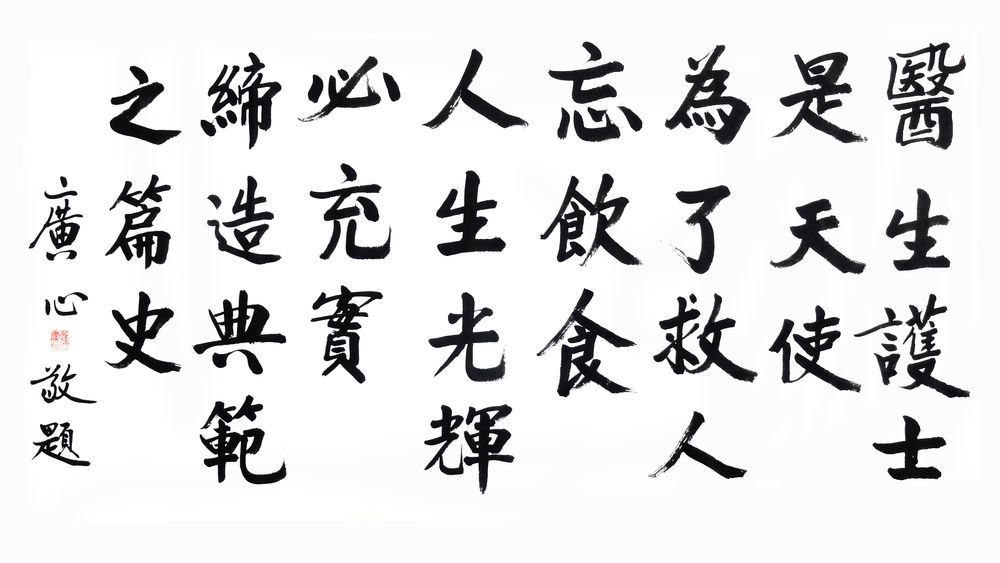 醫生護士
是天使
為了救人
忘飲食
人生光輝
必充實
締造典範
之篇史
廣心敬題